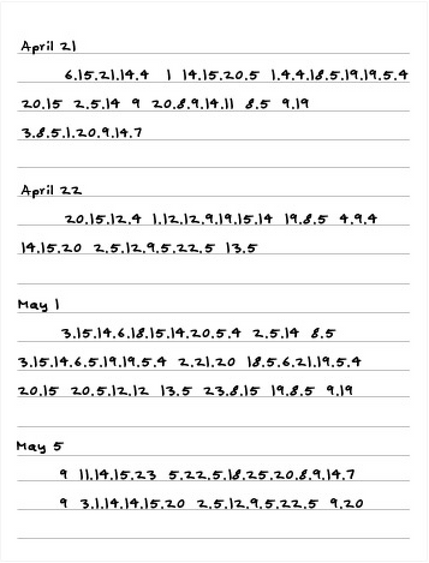 April 21
6.15.21.14.4 1 14.15.20.5 1.4.4.18.5.19.19.5.4
20.15 2.5.14 9 20.8.9.14.11 8.5 9.19
3.8.5.1.20.9.14.7
April 22
20.15.12.4 1.12.12.9.19.15.14 19.8.5 4.9.4
14.15.20 2.5.12.9.5.22.5 13.5
May 1
3.15.14.6.18.15.14.20.5.4 2.5.14 8.5
3.15.14.6.5.19.19.5.4 2.21.20 18.5.6.21.19.5.4
20.15 20.5.12.12 13.5 23.8.15 19.8.5 9.19
May 5
9 11.14.15.23 5.22.5.18.25.20.8.9.14.7
9 3.1.14.14.15.20 2.5.12.9.5.22.5 9.20